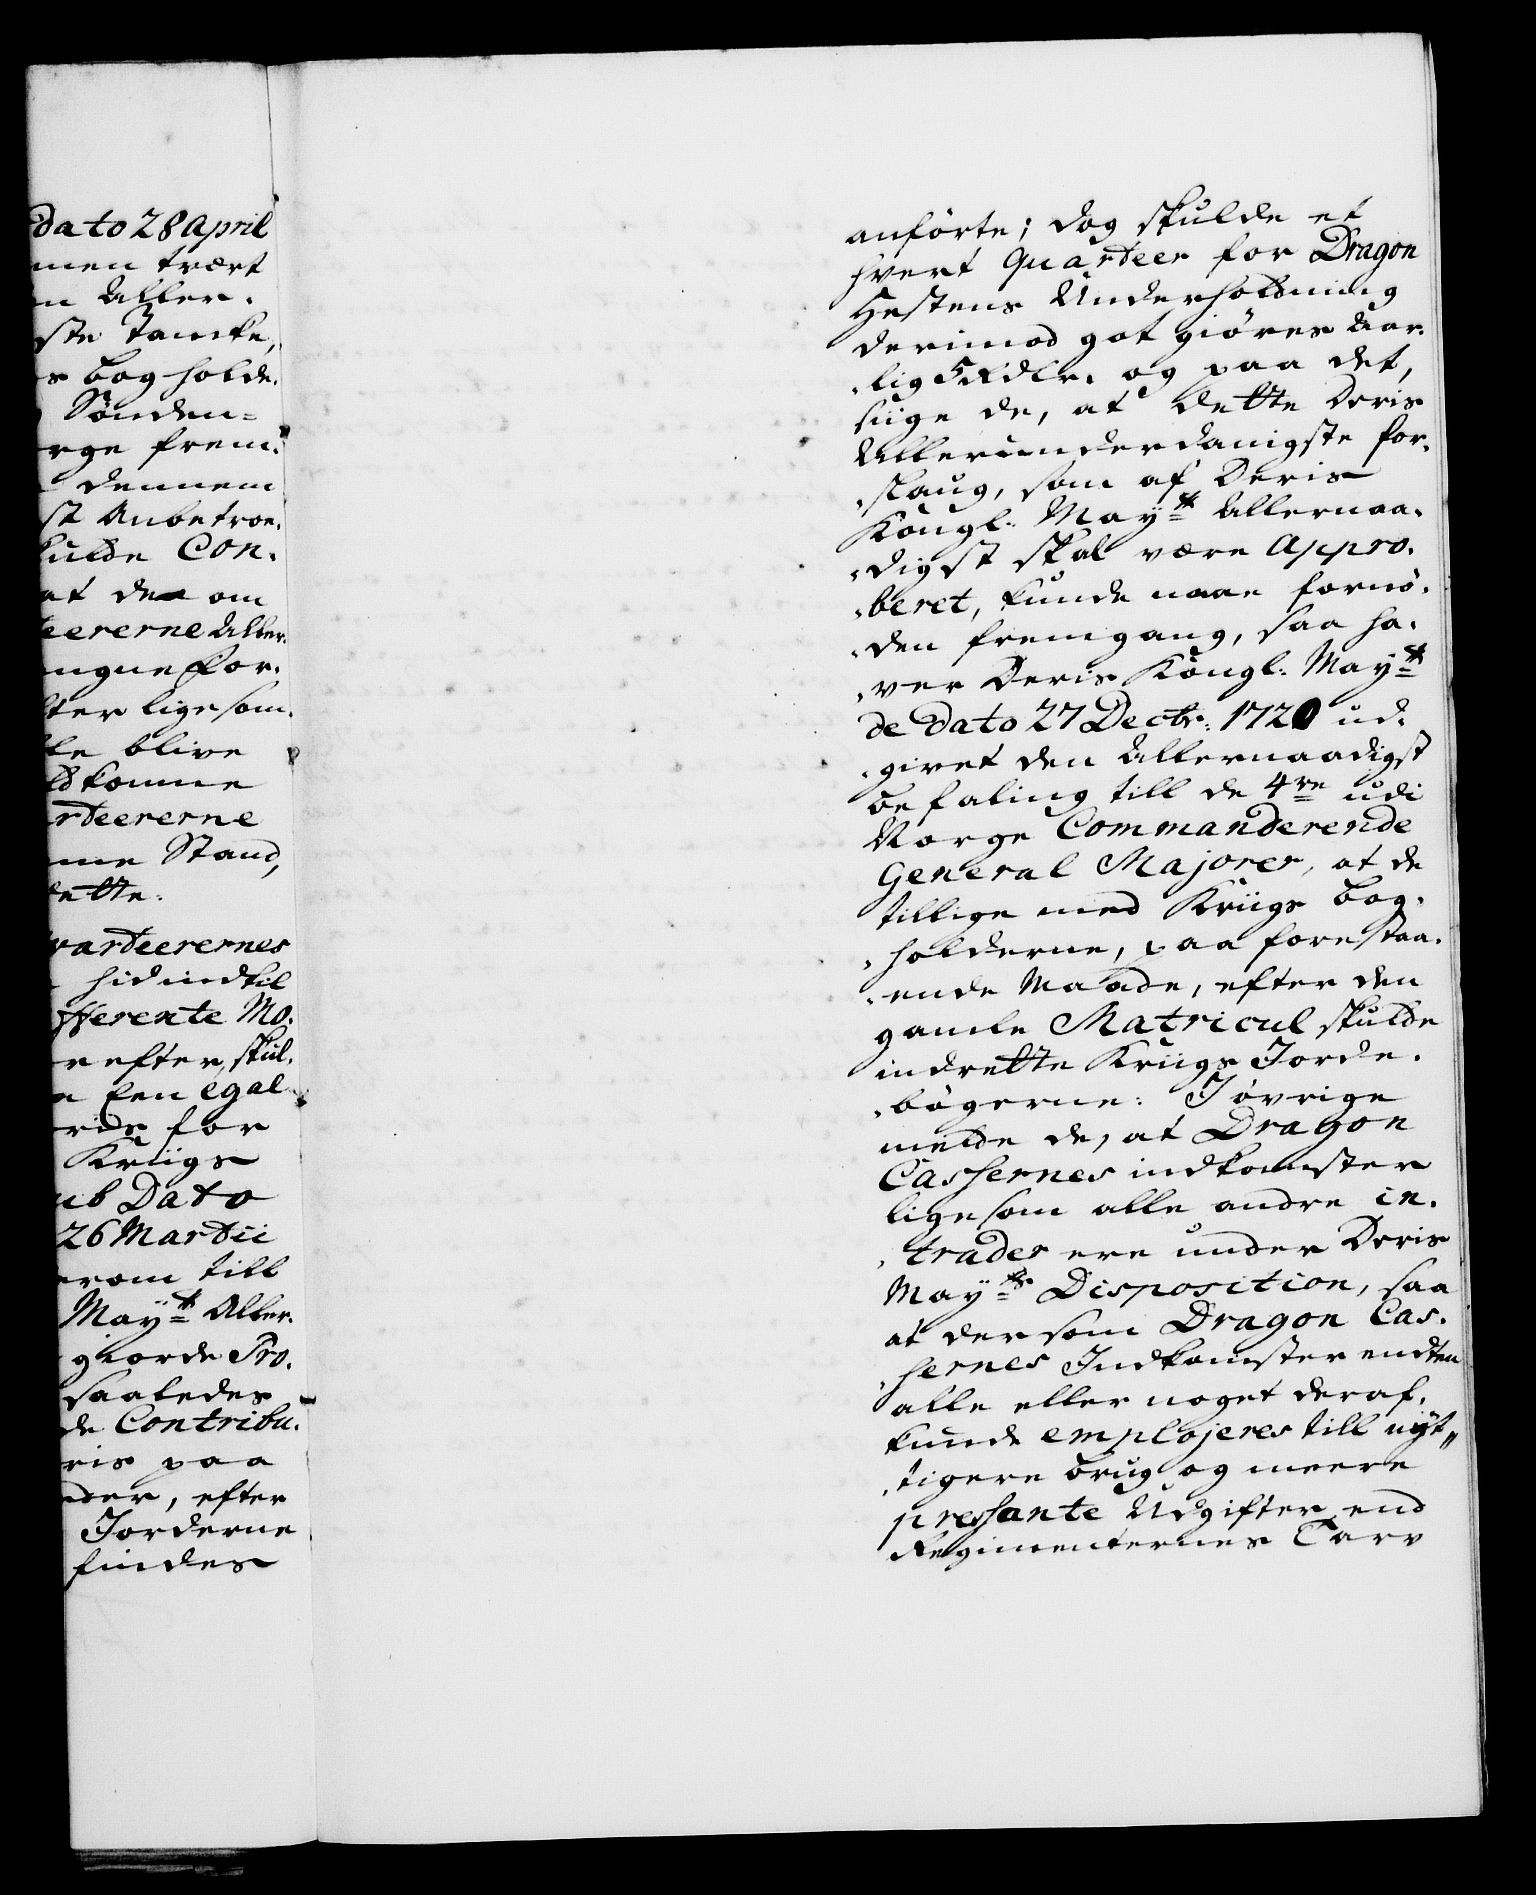 dato 28 April
men tvært
n Aller.
ste Tancke,
s bogholde.
Sönden=
rge frem.
dennem
st Anbetroe.
kulde Con.
at de om
teererne Aller.
ngne for.
ter ligesom.
le blive
dkomme
rteererne
me Stand,
dette.
varteerernes
hidindtil
fferente Mo.
r efter, skul.
n Een egal
rde for
Kriigs
ub Dato
26 Martii
rom till
Mayt Aller.
giorde Pro.
saaledes
de Contribu.
ris paa
der, efter
Jorderne
findes
anförte; dog skulde et
hvert Quarteer for Dragon
Hestens Underholdning
derimod got giöres Aar.
lig 5 Rdlr. og paa det,
siige de, at dette Deris
Allerunderdanigste for.
slaug, som af Deris
Kongl: Mayt Allernaa.
digst skal være Appro.
beret, kunde naae fornö.
den fremgang, saa ha.
ver Deris Kongl: Mayt
de dato 27 Decbr: 1720 ud.
givet den Allernaadigst
befaling till de 4re udi
Norge Commanderende
General Majorer, at de
tillige med Kriigs bog.
holderne, paa forestaa.
ende Maade, efter den
gamle Matricul skulde
indrette Kriigs Jorde.
bögerne: I övrige
melde de, at Dragon
Cassernes indkomster
ligesom alle andre in.
trader ere under Deris
Mayts Disposition, saa
at dersom Dragon Cas.
sernes Indkomster endten
alle eller noget deraf,
kunde emplojeres till nÿt„
tigere brug og meere
pressante Udgifter end
Regimenternes Tarv